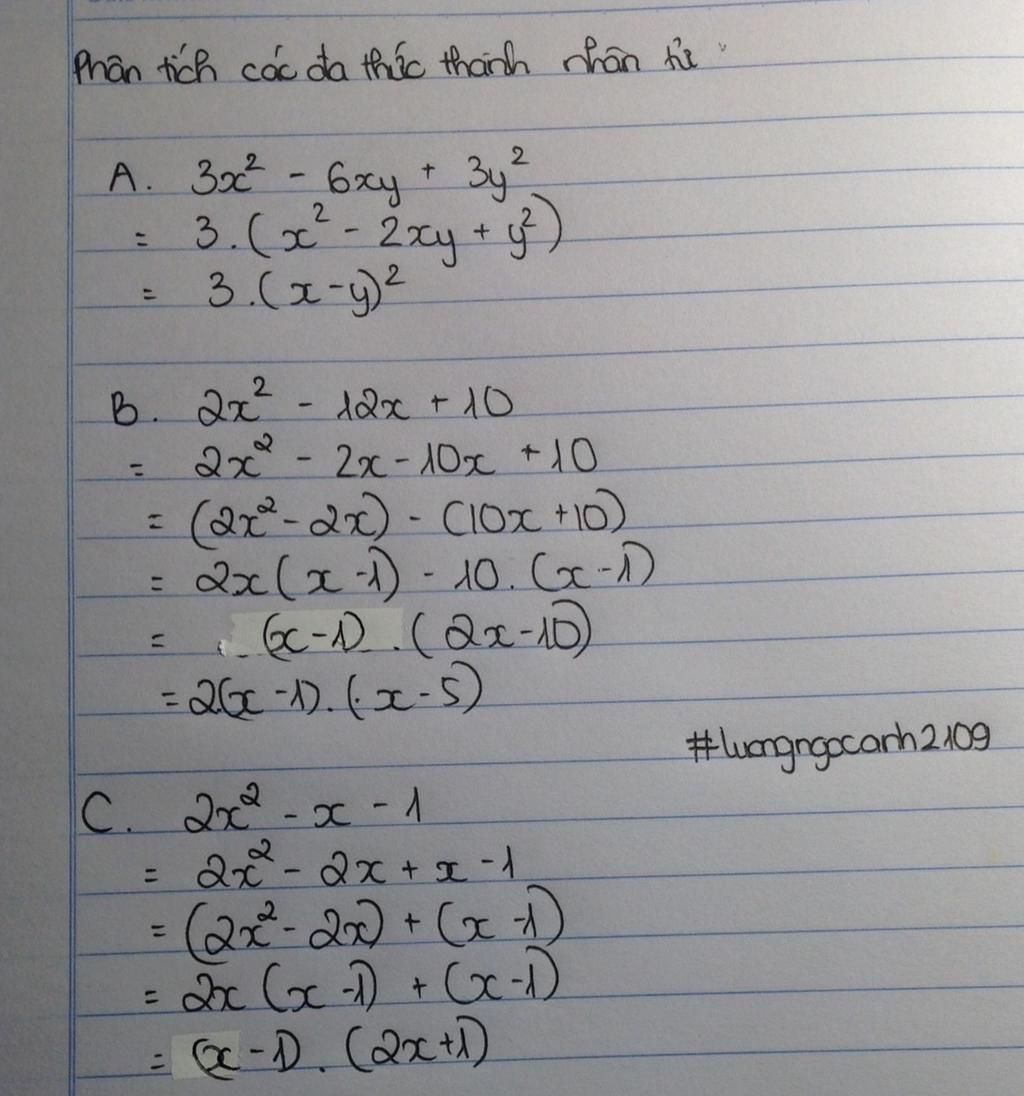 Phân tích các đa thức thành nhân tử
A. 3x² - 6xy + 3y²
= 3.(x² - 2xy + y²)
= 3.(x-y)²
B. 2x² - 12x + 10
= 2x² - 2x - 10x + 10
= (2x² - 2x) - (10x + 10)
= 2x(x - 1) - 10.(x - 1)
= (x - 1).(2x - 10)
= 2(x - 1).(x - 5)
#luongngocanh2109
C. 2x² - x - 1
= 2x² - 2x + x - 1
= (2x² - 2x) + (x - 1)
= 2x(x - 1) + (x - 1)
= (x - 1).(2x + 1)